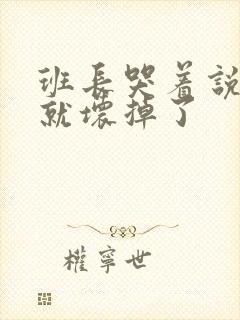 班長哭着說
就壞掉了
權寧世